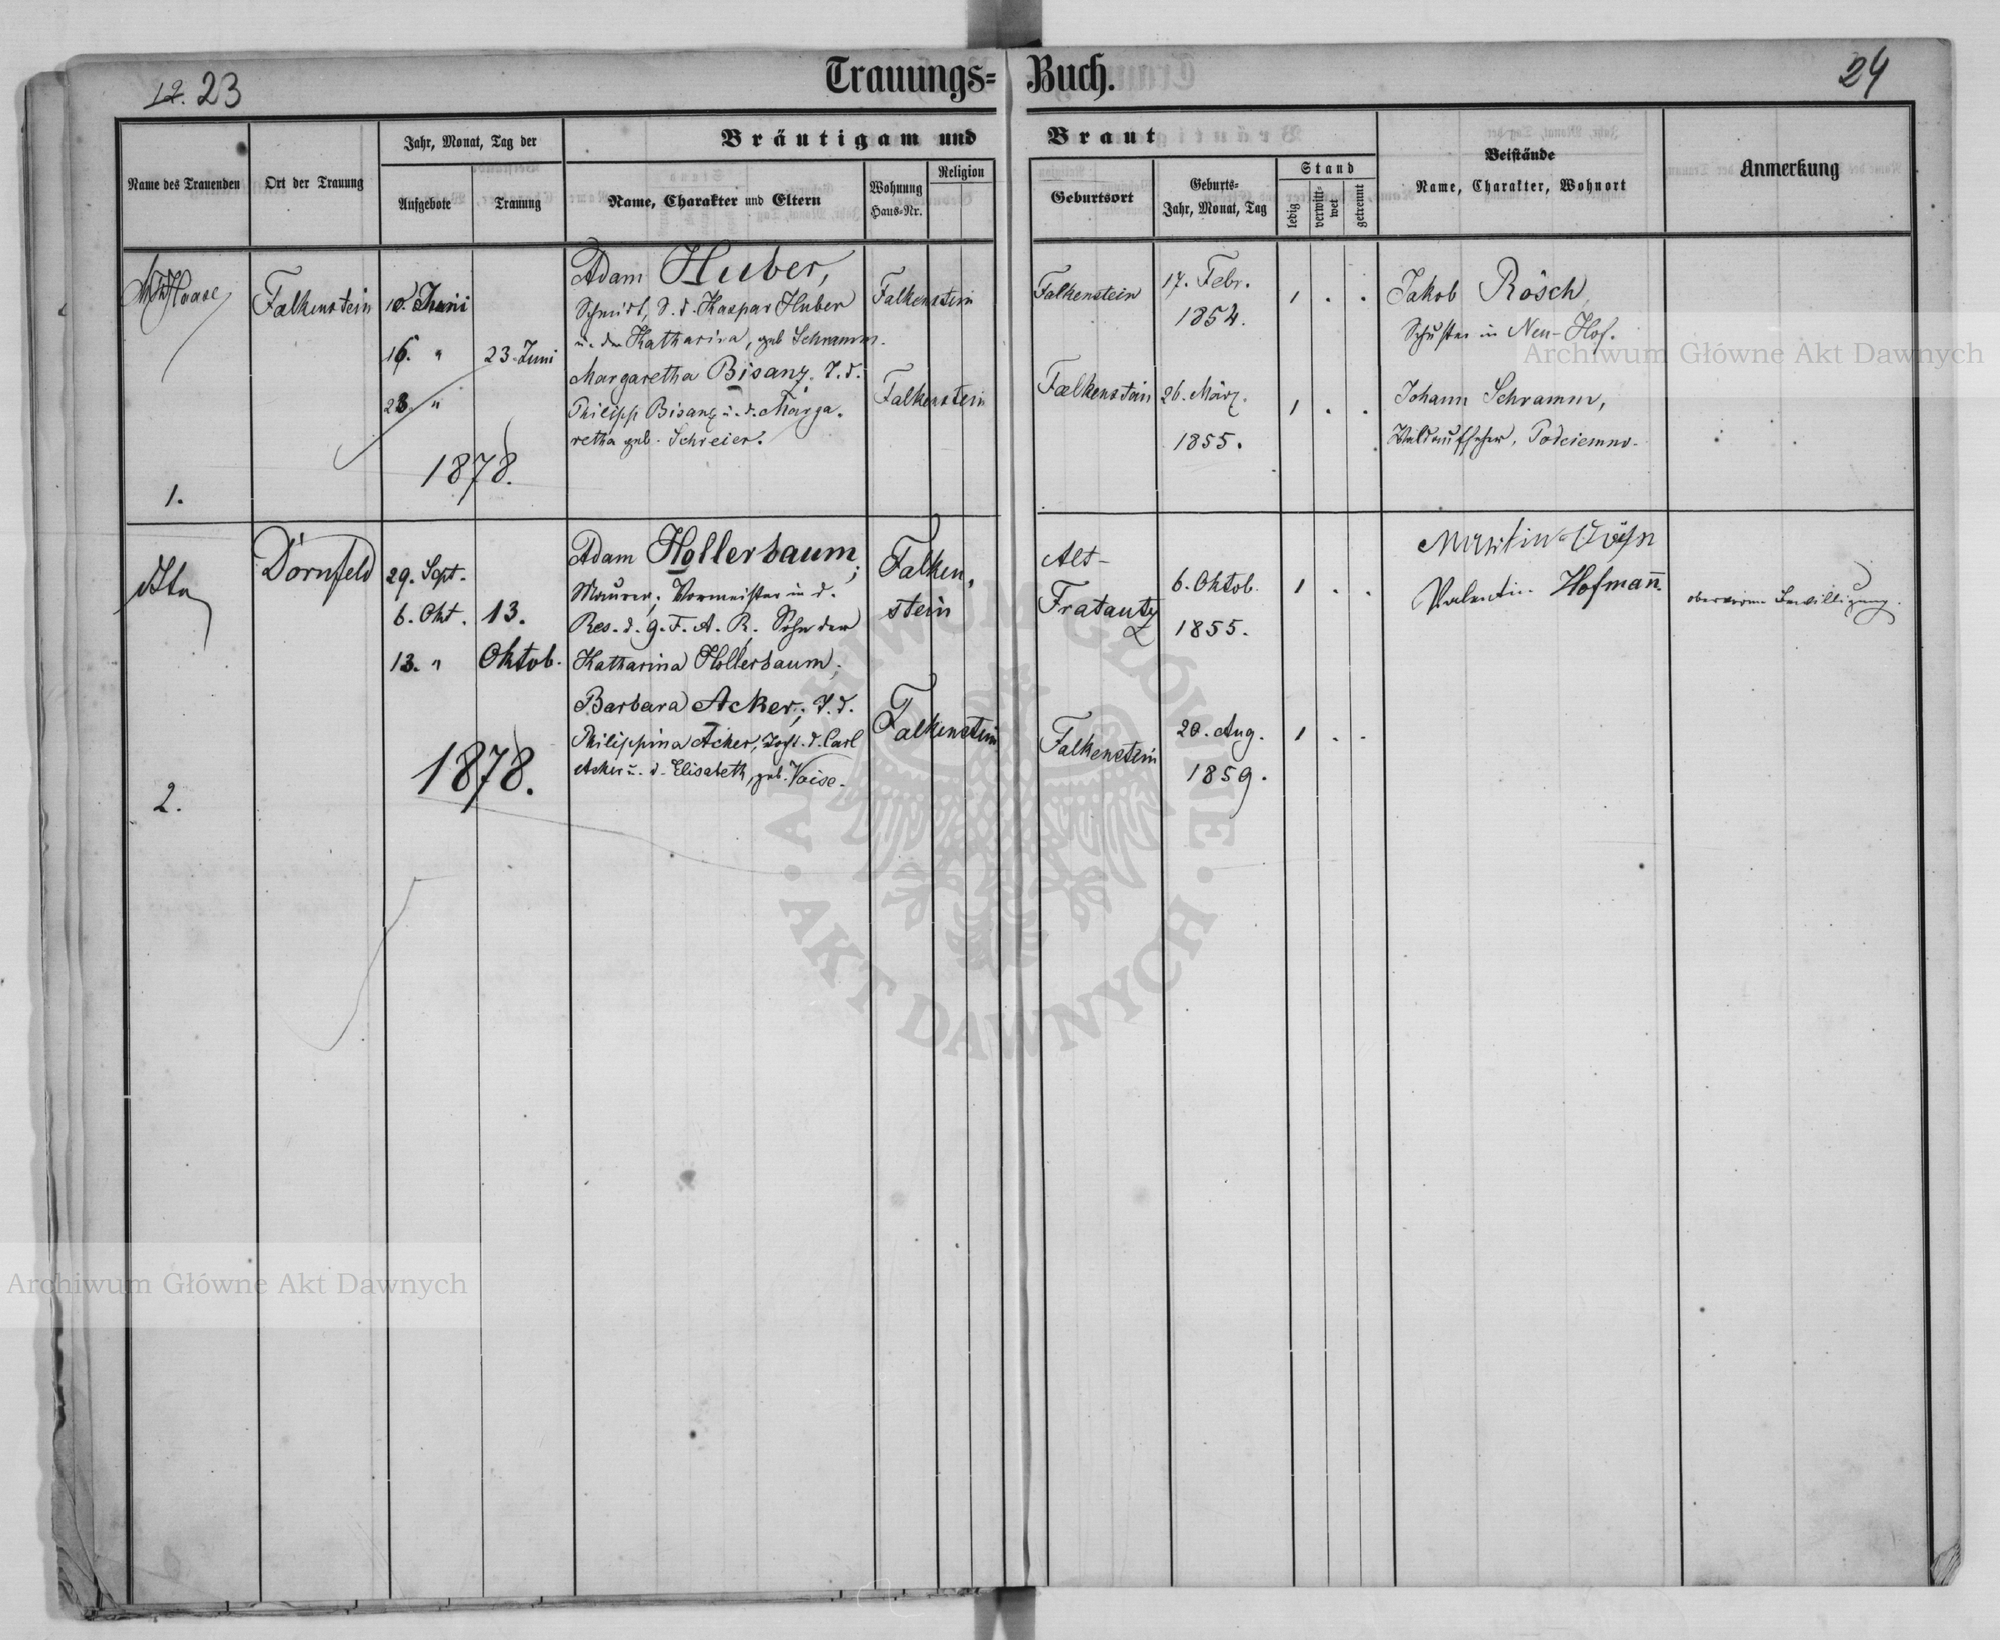 Trauungs= Buch.
12. 23
24
Name des Trauenden
Ort der Trauung
Jahr, Monat, Tag der
Aufgebote
Trauung
Bräutigam und Braut
Name, Charakter und Eltern
Wohnung
Haus-Nr.
Religion
Geburtsort
Geburts-
Jahr, Monat, Tag
Stand
ledig
verwit-
wet
getrennt
Beistände
Name, Charakter, Wohnort
Anmerkung
Haase
Falkenstein
Juni
16. "
23. "
23. Juni
1878.
1.
Adam Huber,
Schmidt, S. d. Kaspar Huber
u. der Katharina, geb Schramm.
Falkenstein
Falkenstein
17. Febr.
1854.
1 . .
Margaretha Bisanz, T. d.
Philipp Bisanz u. d. Marga-
retha geb. Schreier.
Falkenstein
Falkenstein
26. März.
1855.
1 . .
Jakob Rösch,
Schuster in Neu-Hof.
Johann Schramm,
Waldaufseher, Podciemno.
Dornfeld
29. Sept.
6. Okt.
13. "
13.
Oktob.
1878.
2.
Adam Hollerbaum,
Maurer, Vormeister in d.
Res. d. 9. F. A. R. Sohn der
Katharina Hollerbaum,
Falken-
stein
Alt-
Fratautz
6. Oktob.
1855.
1 . .
Barbara Acker, T. d.
Philippina Acker, Tocht. d. Carl
Acker u. d. Elisabeth, geb. Voise.
Falkenstein
Falkenstein
20. Aug.
1859.
1 . .
Martin
Valentin Hofmann.
Bewilligung.
Archiwum Główne Akt Dawnych
Archiwum Główne Akt Dawnych
ARCHIWUM GŁÓWNE · AKT DAWNYCH ·